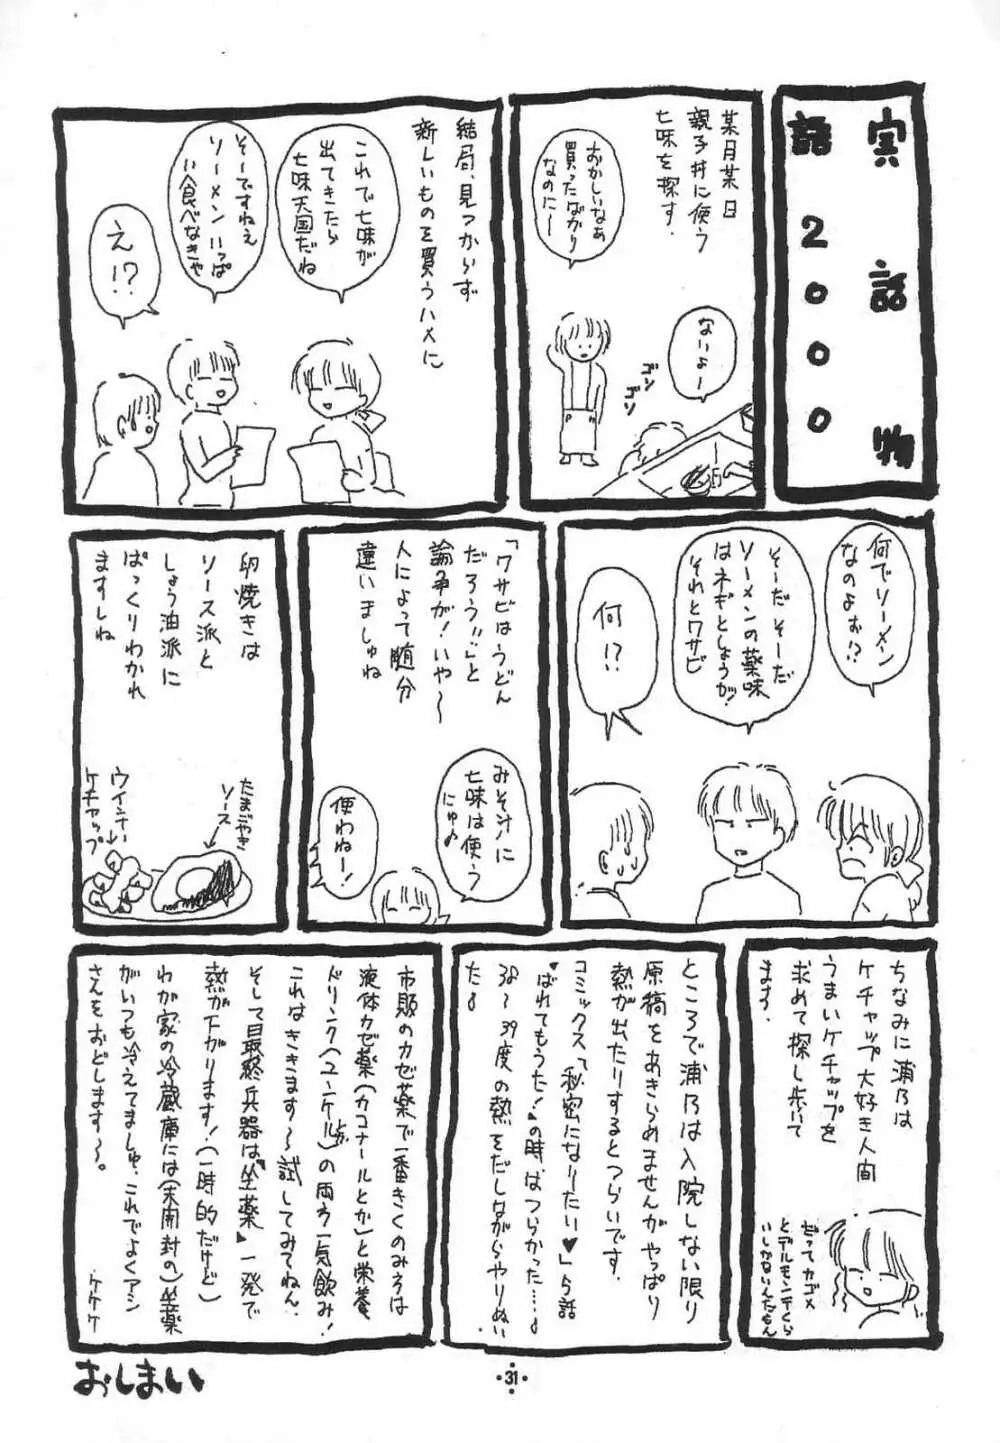 実話物
語2000
某月某日
親子丼に使う
七味を探す.
おかしいなぁ
買ったばかり
なのに〜
ないよー
ゴン
ゴソ
PH
結局、見つからず
新しいものを買うハメに
これで七味が
出てきたら
七味天国だね
そーですねぇ
ソーメンいっぱ
い食べなきゃ
え!?
何でソーメン
なのよぉ!?
そーだそーだ
ソーメンの薬味
はネギとしょうが!
それとワサビ
何!?
「ワサビはうどん
だろう!!」と
論争が!いや〜
人によって随分
違いましゅね
みそ汁に
七味は使う
にゅ♪
使わねー!
卵焼きは
ソース派と
しょう油派に
ぱっくりわかれ
ますしね
たまごやき
ソース
ウインナー
ケチャップ
ちなみに浦乃は
ケチャップ大好き人間
うまいケチャップを
求めて探し歩いて
ます.
だってカゴメ
とデルモンテくら
いしかないんだもん
ところで浦乃は入院しない限り
原稿をあきらめませんがやっぱり
熱が出たりするとつらいです.
コミックス「秘密になりたい♥」ら話
♥ばれてもうた!♥の時はつらかった…♪
38〜39度の熱をだしながらやりぬい
た♪
市販のカゼ薬で一番きくのみろは
液体カゼ薬(カコナールとか)と栄養
ドリンク(ユンケルとか)の両方一気飲み!
これはききます〜試してみてねん.
そして最終兵器は♥坐薬♥一発で
熱が下がります!(一時的だけど)
わが家の冷蔵庫には(未開封の)坐薬
がいつも冷えてましゅ.これでよくアシ
さんをおどします〜。
ケケケ
おしまい
31